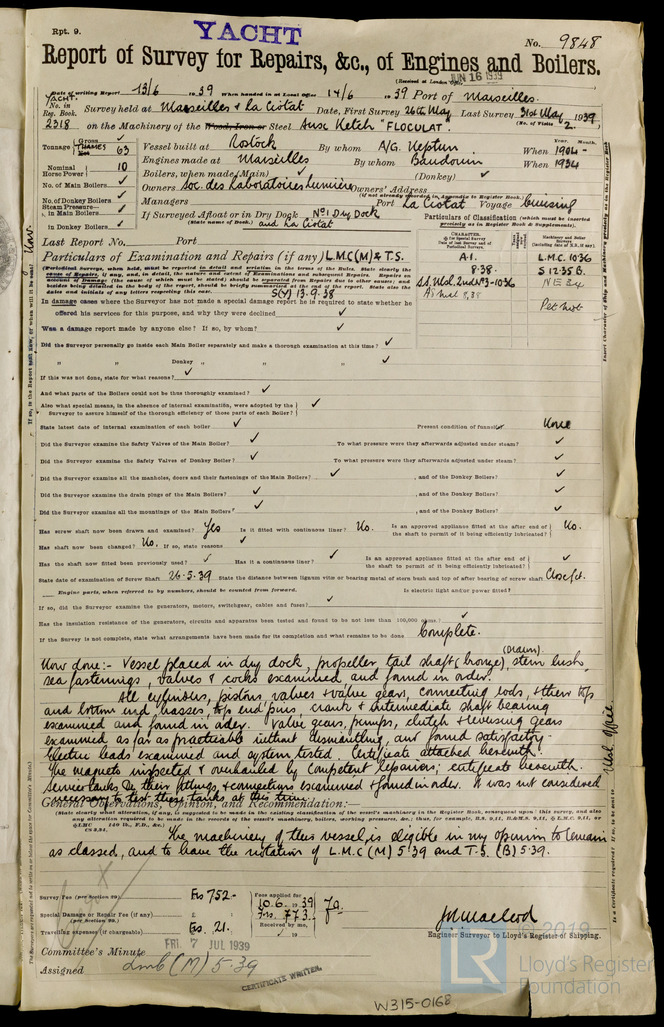 Rpt. 9.
YACHT
No. 9848
Report of Survey for Repairs, &c., of Engines and Boilers.
(Received at London Office JUN 16 1939
Date of writing Report 13/6 1939 When handed in at Local Office 14/6 1939 Port of Marseilles.
YACHT.
No. in Reg. Book. Survey held at Marseilles & La Ciotat Date, First Survey 26th May Last Survey 31st May 1939
2318 on the Machinery of the Wood, Iron or Steel Aux Ketch "FLOCULAT." (No. of Visits 2.
Tonnage Gross ✓ Vessel built at Rostock By whom A/G. Neptun When 1904
63
Nominal Horse Power 10 Engines made at Marseilles By whom Baudouin When 1934
No. of Main Boilers ✓ Boilers, when made (Main) ✓ (Donkey) ✓
No. of Donkey Boilers ✓ Owners Soc. des Laboratoires Lumière Owners' Address
(if not already recorded in Appendix to Register Book.)
Steam Pressure in Main Boilers ✓ Managers Port La Ciotat Voyage Cruising
in Donkey Boilers ✓ If Surveyed Afloat or in Dry Dock No 1 Dry Dock
(State name of Dock.) and La Ciotat
Particulars of Classification (which must be inserted precisely as in Register Book & Supplements).
Last Report No. Port
Particulars of Examination and Repairs (if any) L.M.C (M) & T.S.
A.1. L.M.C. 10.36
8.38 S 12.35 B.
NE 34
S(Y) 13.9.38
In damage cases where the Surveyor has not made a special damage report he is required to state whether he
offered his services for this purpose, and why they were declined ✓
Was a damage report made by anyone else? If so, by whom? ✓
Did the Surveyor personally go inside each Main Boiler separately and make a thorough examination at this time? ✓
" " Donkey " " " " ✓
If this was not done, state for what reasons? ✓
And what parts of the Boilers could not be thus thoroughly examined? ✓
Also what special means, in the absence of internal examination, were adopted by the Surveyor to assure himself of the thorough efficiency of those parts of each Boiler? ✓
State latest date of internal examination of each boiler ✓ Present condition of funnel(s) None
Did the Surveyor examine the Safety Valves of the Main Boiler? ✓ To what pressure were they afterwards adjusted under steam? ✓
Did the Surveyor examine the Safety Valves of Donkey Boiler? ✓ To what pressure were they afterwards adjusted under steam? ✓
Did the Surveyor examine all the manholes, doors and their fastenings of the Main Boilers? ✓ , and of the Donkey Boilers? ✓
Did the Surveyor examine the drain plugs of the Main Boilers? ✓ , and of the Donkey Boilers? ✓
Did the Surveyor examine all the mountings of the Main Boilers? ✓ , and of the Donkey Boilers? ✓
Has screw shaft now been drawn and examined? Yes Is it fitted with continuous liner? No. Is an approved appliance fitted at the after end of the shaft to permit of it being efficiently lubricated? No.
Has shaft now been changed? No. If so, state reasons ✓
Has the shaft now fitted been previously used? ✓ Has it a continuous liner? ✓ Is an approved appliance fitted at the after end of the shaft to permit of it being efficiently lubricated? ✓
State date of examination of Screw Shaft 26-5-39 State the distance between lignum vitæ or bearing metal of stern bush and top of after bearing of screw shaft Close fit.
Engine parts, when referred to by numbers, should be counted from forward. Is electric light and/or power fitted?
If so, did the Surveyor examine the generators, motors, switchgear, cables and fuses? ✓
Has the insulation resistance of the generators, circuits and apparatus been tested and found to be not less than 100,000 ohms? ✓
If the Survey is not complete, state what arrangements have been made for its completion and what remains to be done Complete.
Now done:- Vessel placed in dry dock, propeller, tail shaft (bronze) (Drawn), stern bush,
sea fastenings, valves & cocks examined and found in order.
All cylinders, pistons, valves & valve gears, connecting rods, & their top
and bottom end brasses, top end pins, crank & intermediate shaft bearing
examined and found in order. Valve gears, pumps, clutch & reversing gears
examined as far as practicable without dismantling, and found satisfactory.
Electric leads examined and system tested. Certificate attached herewith.
The magnets inspected & overhauled by competent repairers; certificate herewith.
Service tanks, their fittings & connections examined & found in order. It was not considered
necessary to test these tanks at this time.
General Observations, Opinion, and Recommendation:—
The machinery of this vessel, is eligible in my opinion to remain
as classed, and to have the notation of L.M.C (M) 5.39 and T.S. (B) 5.39.
Survey Fee (per Section 29) Frs 752.- Fees applied for 10.6.1939
Special Damage or Repair Fee (if any) (per Section 29.) £ Frs. 773.-
Travelling expenses (if chargeable) Frs. 21.- Received by me,
J.H. Macleod
Engineer Surveyor to Lloyd's Register of Shipping.
Committee's Minute FRI. 7 JUL 1939
Assigned Lmb (M) 5.39
CERTIFICATE WRITTEN.
W315-0168
© 2019
LR
Lloyd's Register
Foundation